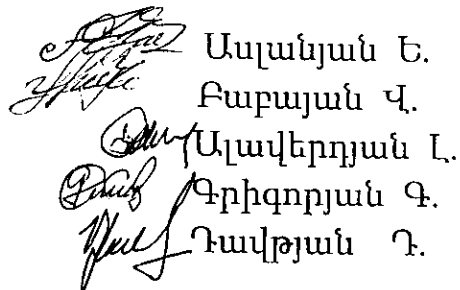 Ասլանյան Ե.
Բաբայան Վ.
Ալավերդյան Լ.
Գրիգորյան Գ.
Դավթյան Դ.